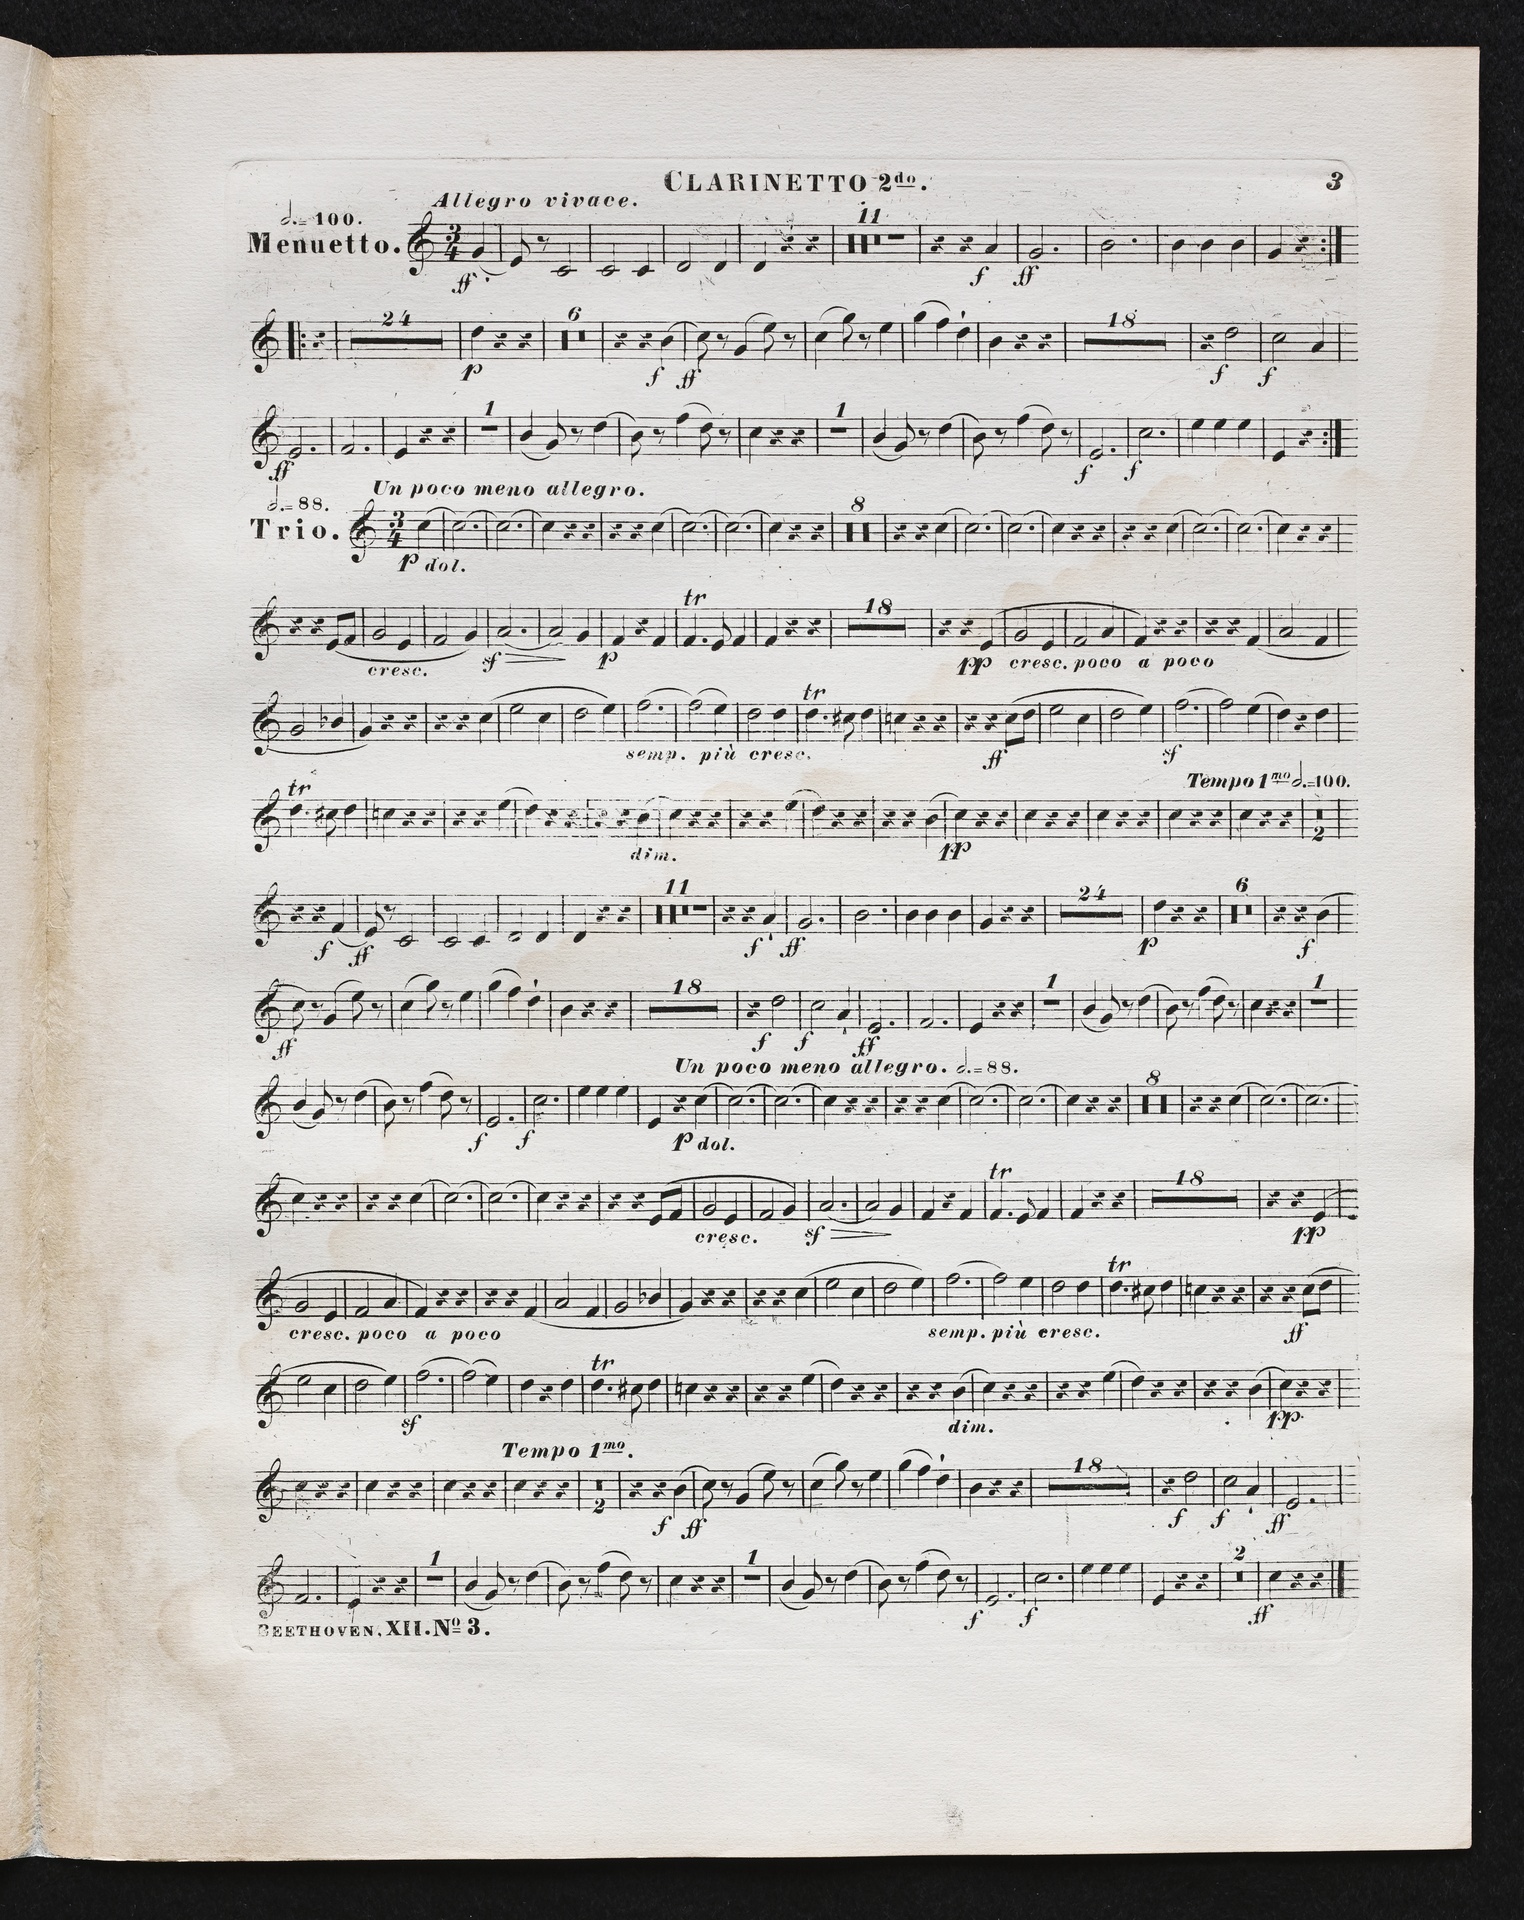 CLARINETTO 2do.
3
Allegro vivace.
𝅗𝅥. = 100.
11
Menuetto.
3
4
ff f ff
24 6 18
p f ff f f
1 1
ff f f
Un poco meno allegro.
𝅗𝅥. = 88.
8
Trio.
3
4
p dol.
tr 18
cresc. sf p pp cresc. poco a poco
tr
semp. più cresc. ff sf
Tempo 1mo 𝅗𝅥. = 100.
tr
2
dim. pp
11 24 6
f ff f ff p f
18 1 1
ff f f ff
Un poco meno allegro. 𝅗𝅥. = 88.
8
f f p dol.
tr 18
cresc. sf pp
tr
cresc. poco a poco semp. più cresc. ff
tr
sf dim. pp
Tempo 1mo.
18
2
f ff f f ff
1 1 2
f f ff
BEETHOVEN. XII. No 3.